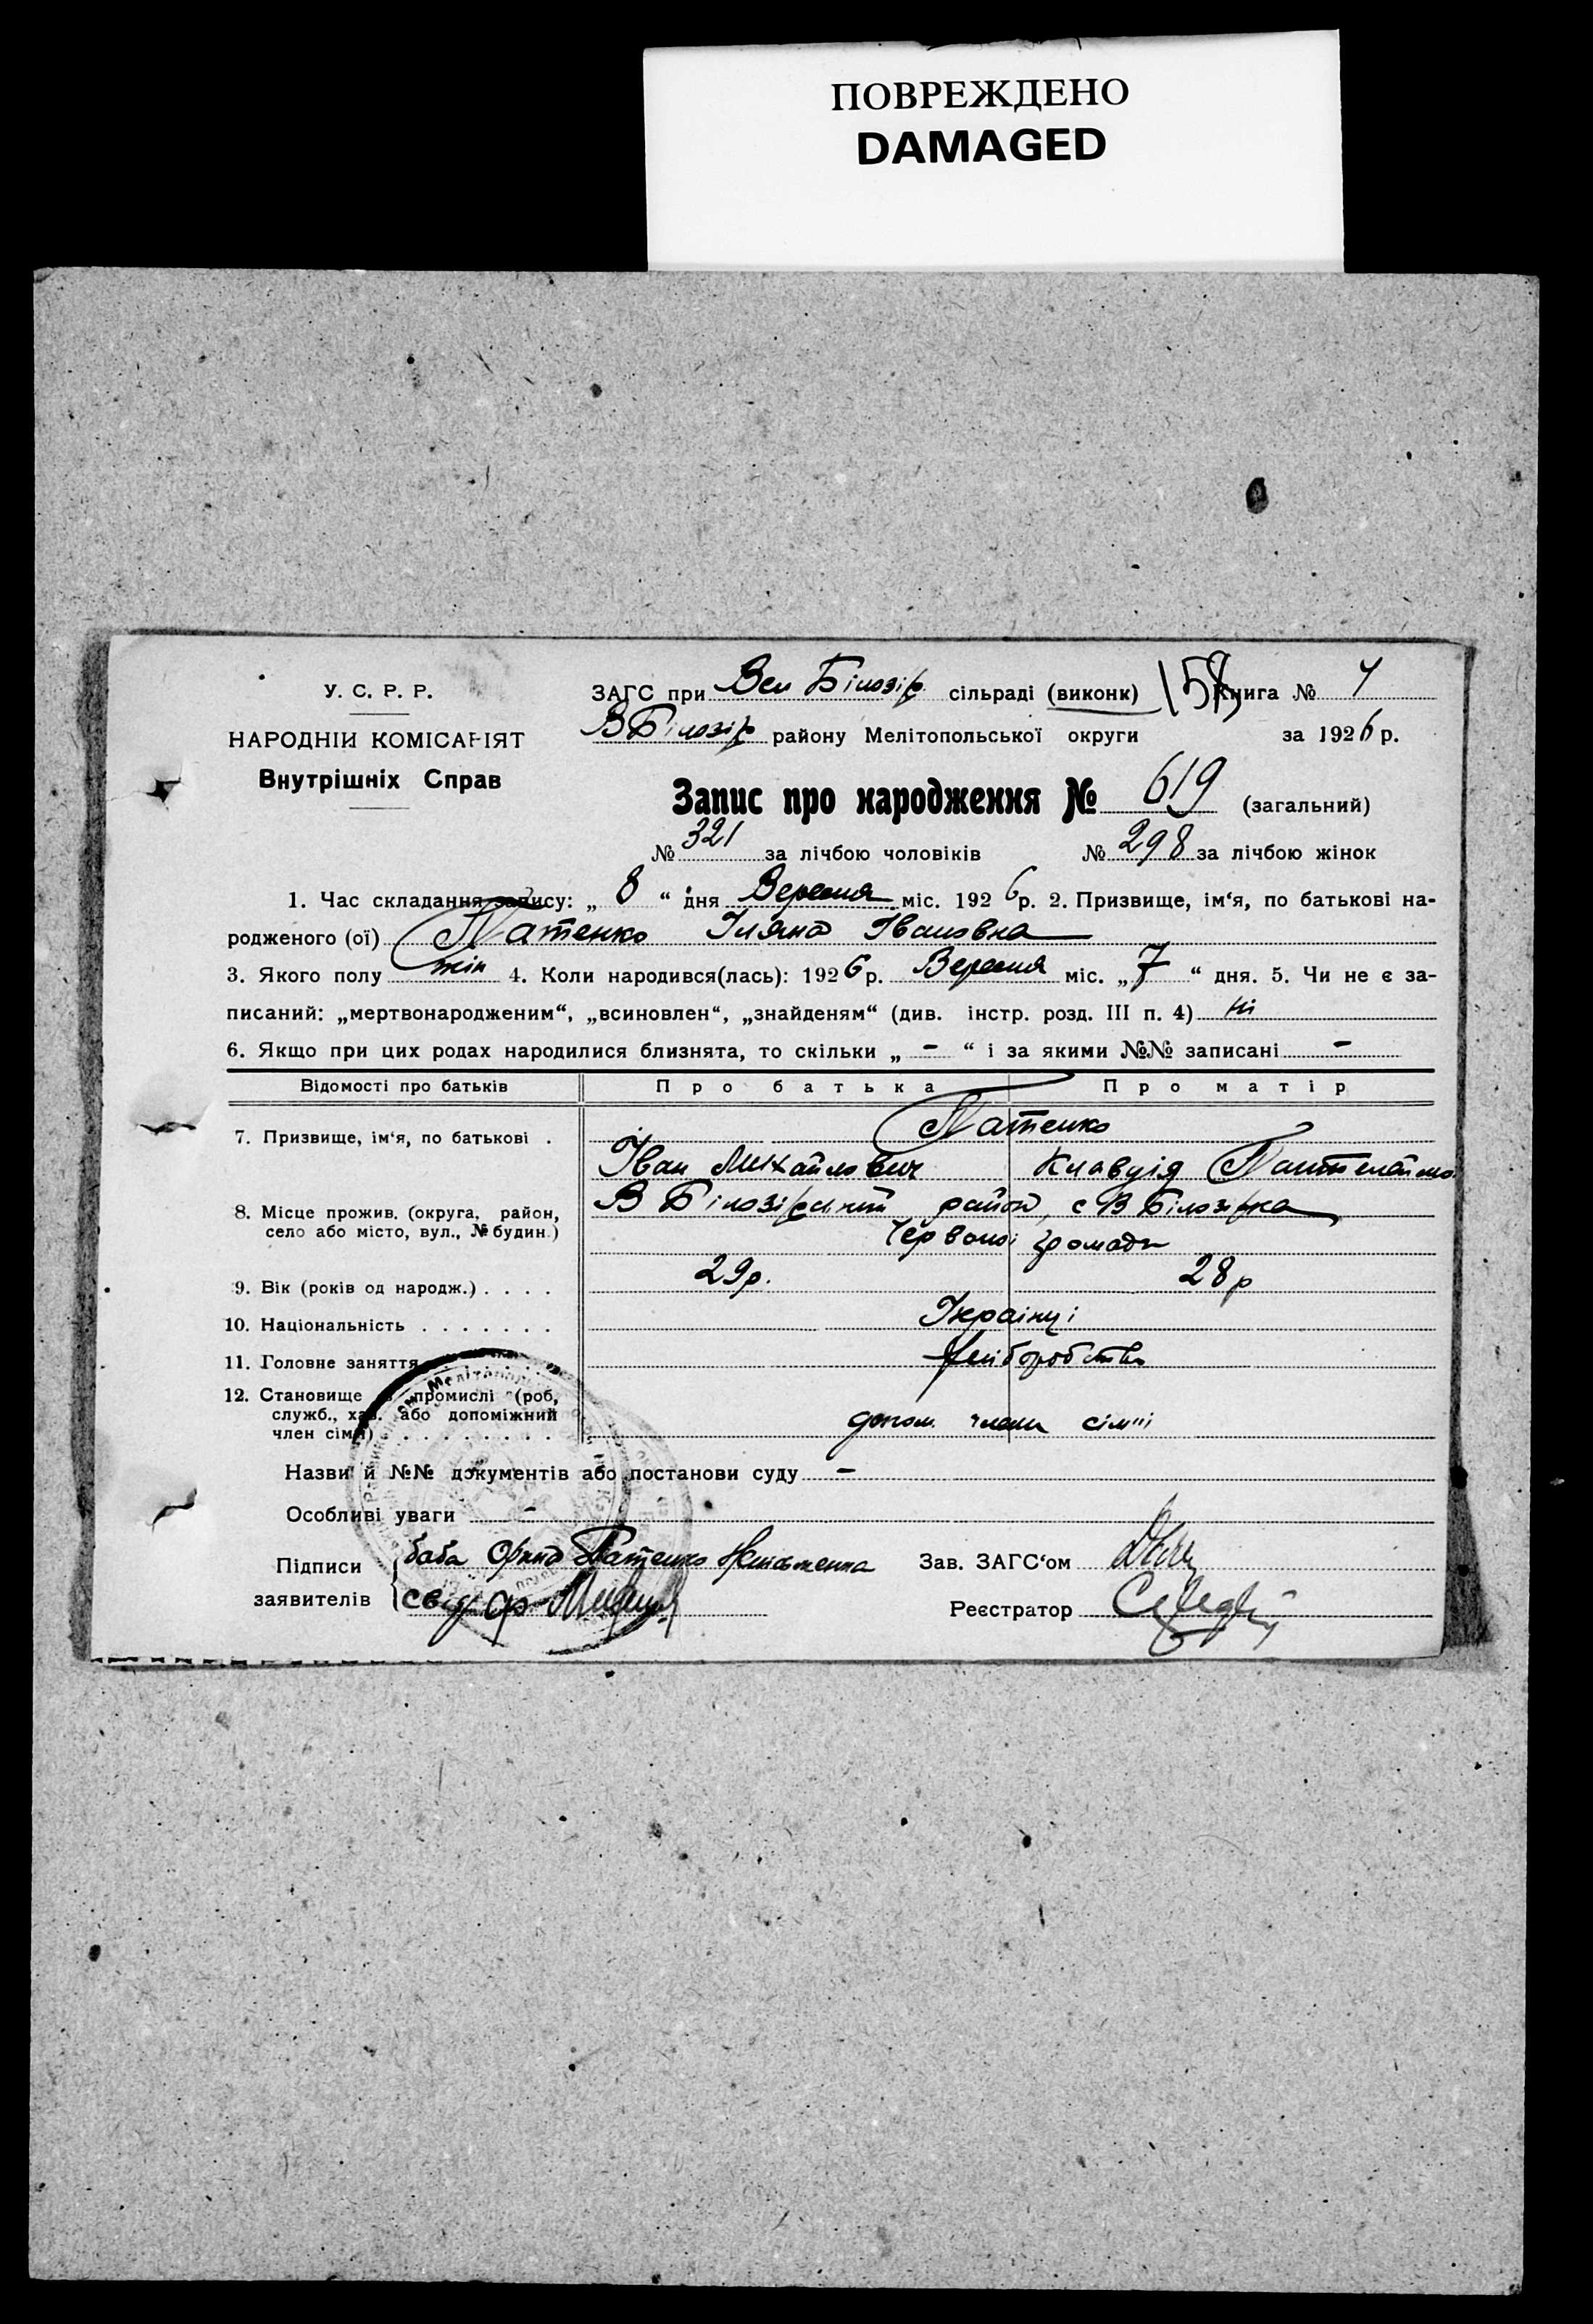 ПОВРЕЖДЕНО
DAMAGED
У. С. Р. Р.
НАРОДНІЙ КОМІСАРІЯТ
Внутрішніх Справ
ЗАГС при Вел Білозір. сільраді (виконк) Книга №
В Білозір району Мелітопольської округи за 1926 р.
Запис про народження № 619 (загальний)
№ 321 за лічбою чоловіків № 298 за лічбою жінок
1. Час складання запису: „ 8 “ дня Вересня міс. 1926 р. 2. Призвище, ім‘я, по батькові на-
родженого (ої) Патенко Іляна Івановна
3. Якого полу жін 4. Коли народився(лась): 1926 р. Вересня міс. „ 7 “ дня. 5. Чи не є за-
писаний: „мертвонародженим“, „всиновлен“, „знайденям“ (див. інстр. розд. III п. 4) ні
6. Якщо при цих родах народилися близнята, то скільки „ - “ і за якими №№ записані -
Відомості про батьків Про батька Про матір
7. Призвище, ім‘я, по батькові . Патенко
Іван Михайлович Клавдія
8. Місце прожив. (округа, район, село або місто, вул., № будин.) В Білозірський район, с В Білозірка
Червоної громади
9. Вік (років од народж.) . . . . 29р. 28р
10. Національність . . . . . . . Українці
11. Головне заняття хліборобство
12. Становище в промислі (роб, служб., хаз. або допоміжний член сім‘ї) . . . . . . . . допом. члени сім'ї
Назви й №№ документів або постанови суду -
Особливі уваги -
Підписи заявителів баба Патенко
свід
Зав. ЗАГС‘ом
Реєстратор